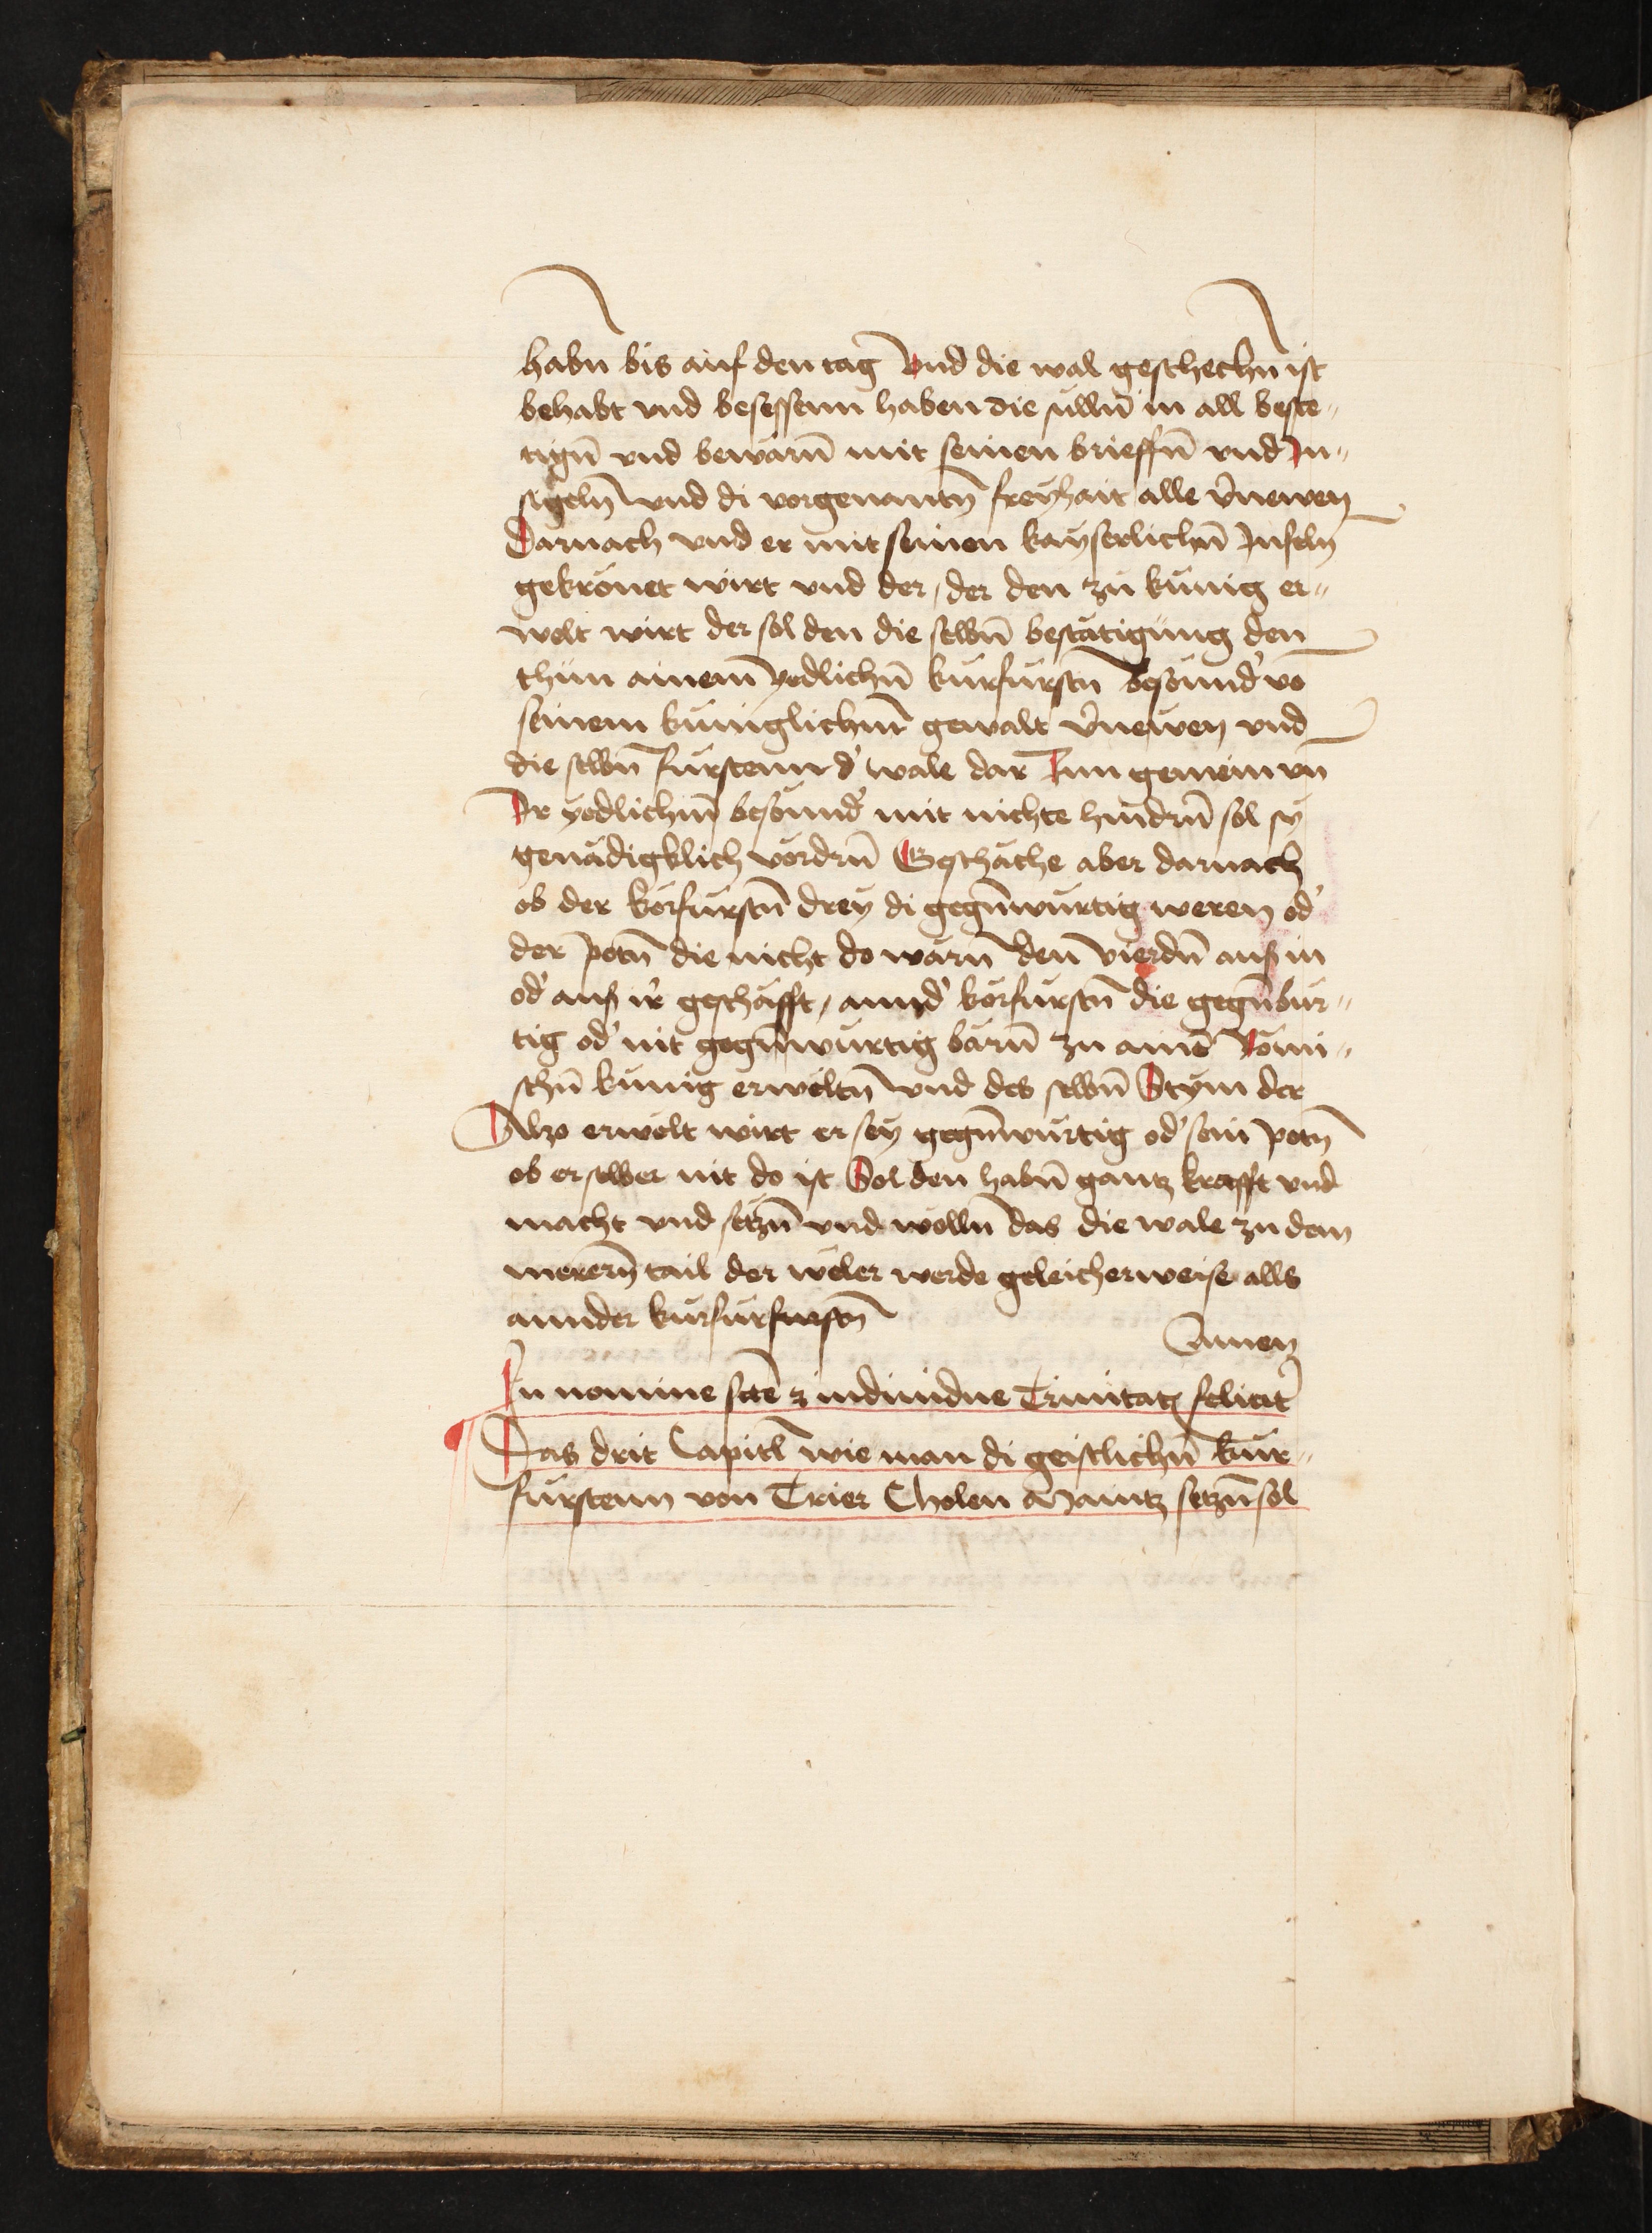 habn bis auf den tag Vnd die wal geschechn ist
behabt vnd besessenn haben die sulln̄ in all beste„
tign̄ vnd bewarn̄ mit seinen brieffn̄ vnd In„
sigeln̄ vnd di vorgenantn̄ freyhait alle v̉newen
Darnach vnd er mit seinen kayserlichn̄ Infeln̄
gekrönet wirt vnd der / der den zu kunig er„
welt wirt der sol den die selbn̄ bestätigung den
thun ainem yedlichn̄ kurfurstn̄ besound̉ vō
seinem kuniglichm̄ gewalt v̉newen vnd
die selbn̄ furstenn d̉ wale dar Inn gemein vn̄
Ir yedlichm̄ besound̉ mit nichte hindrn̄ sol sy
genädigklich vördrn̄ Geschäche aber darnach
ob der körfurstn̄ drey di gegn̄wurtig weren od̉
der potn̄ die nicht do warn̄ den vierdn̄ auß in
od̉ auß ir̉ geschäfft / annd̉ körfurstn̄ die gegn̄bur„
tig od̉ nit gegn̄wurtig barn̄ zu ainē Römi„
schn̄ kunig erweltn̄ vnd des selbn̄ Stym der
Also erwelt wirt er sey gegn̄wurtig od̉ sein potn̄
ob er selber nit do ist Sol den habn̄ gantz krafft vnd
macht vnd setzn̄ vnd wolln̄ das die wale zu dem
merern̄ tail der weler werde geleicherweise alls
annder kurfurfurstn̄
Amen
In nomine scte̅ ⁊ indiuidue Trinitatꝭ felicit̉
Das drit Capitl wie man di geistlichn̄ kur„
furstenn von Trier Cholen Maintz setzn̄ sol